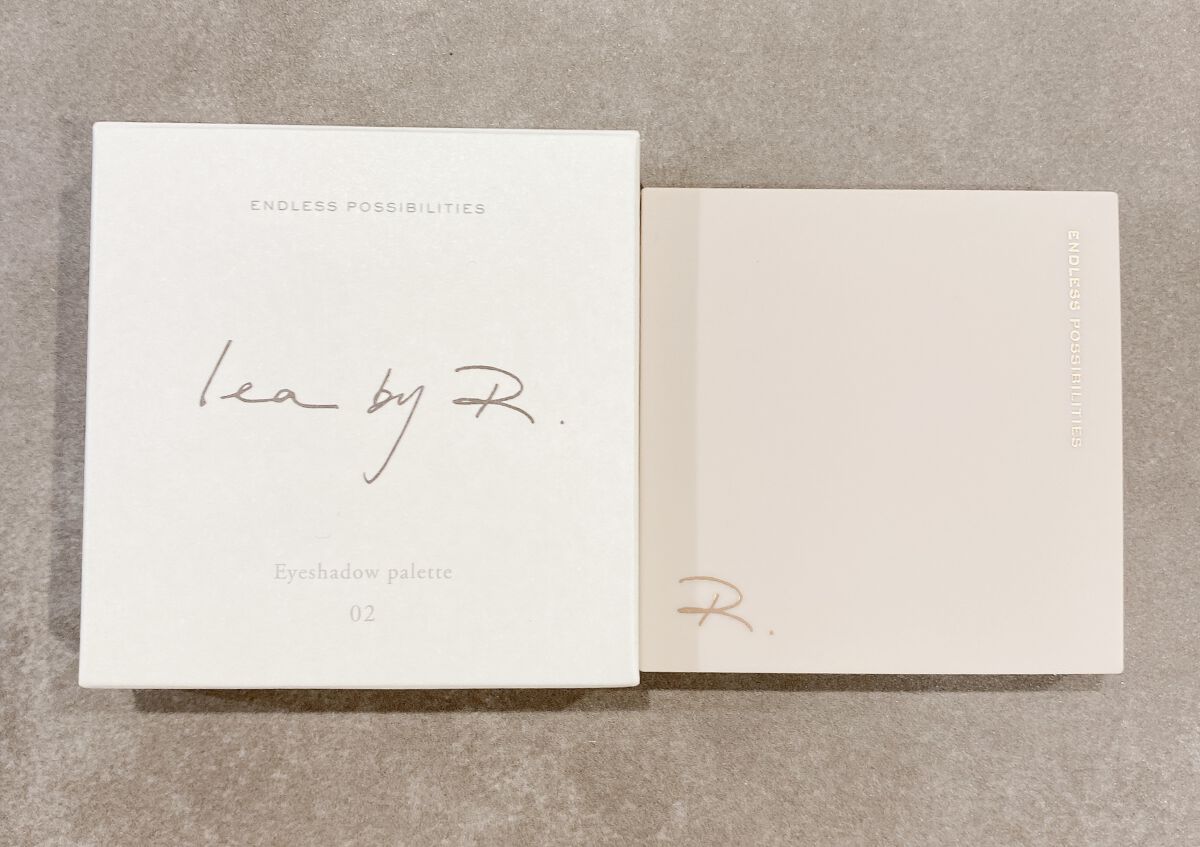 ENDLESS POSSIBILITIES
lea by R.
Eyeshadow palette
02
ENDLESS POSSIBILITIES
R.